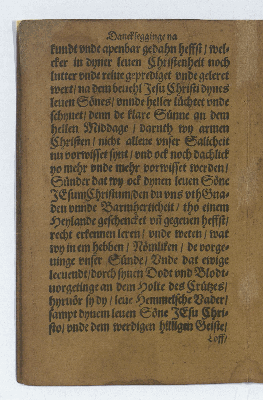 Dancksegginge na
kundt vnde apenbar gedahn heffst / wel-
cker in dyner leuen Christenheit noch
lutter vnde reine geprediget vnde geleret
wert / na dem beuehl Jesu Christi dynes
leuen Sönes / vnnde heller lüchtet vnde
schynet / denn de klare Sünne an dem
hellen Middage / daruth wy armen
Christen / nicht allene vnser Salicheit
nu vorwisset synt / vnd ock noch dachlick
yo mehr vnde mehr vorwisset werden /
Sünder dat wy ock dynen leuen Söne
JEsum Christum / den du vns vth Gna-
den vnnde Barmherticheit / tho einem
Heylande geschencket vñ gegeuen heffst /
recht erkennen leren / vnde weten / wat
wy in em hebben / Nömliken / de vorge-
uinge vnser Sünde / Vnde dat ewige
leeuendt / dorch synen Dodt vnd Blodt-
vorgetinge an dem Holte des Crützes /
hyruör sy dy / leue Hemmelsche Vader /
sampt dynem leuen Söne JEsu Chri-
sto / vnde dem werdigen hilligen Geiste /
Loff /